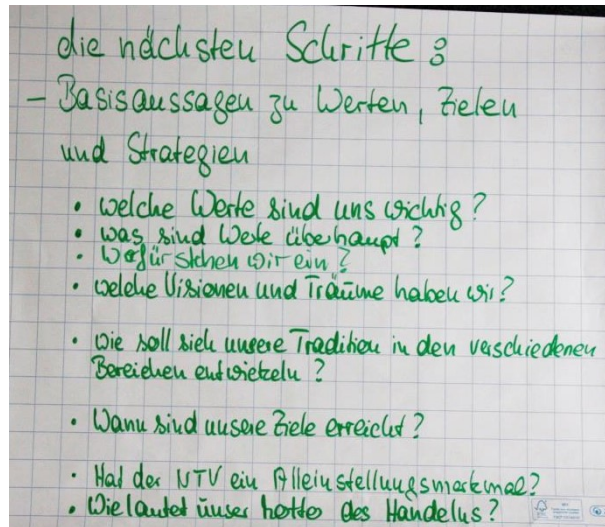 die nächsten Schritte :
– Basisaussagen zu Werten, Zielen
und Strategien
• welche Werte sind uns wichtig?
• was sind Werte überhaupt?
• Wofür stehen wir ein?
• welche Visionen und Träume haben wir?
• wie soll sich unsere Tradition in den verschiedenen
Bereichen entwickeln?
• Wann sind unsere Ziele erreicht?
• Hat der NTV ein Alleinstellungsmerkmal?
• Wie lautet unser Motto des Handelns?